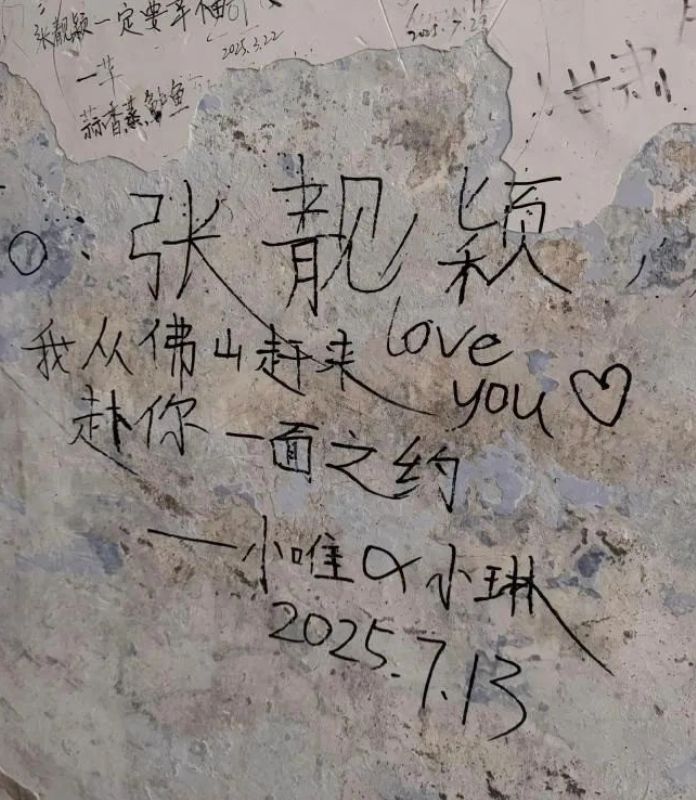 张靓颖一定要幸福
2025.3.22
2025.7.2
一芊
蒜香蒸鲈鱼
甘肃
o: 张靓颖,
我从佛山赶来 love
you♡
赴你一面之约
——小唯 & 小琳
2025.7.13